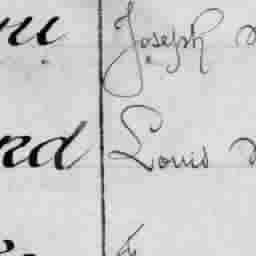 ru Joseph
rd Louis